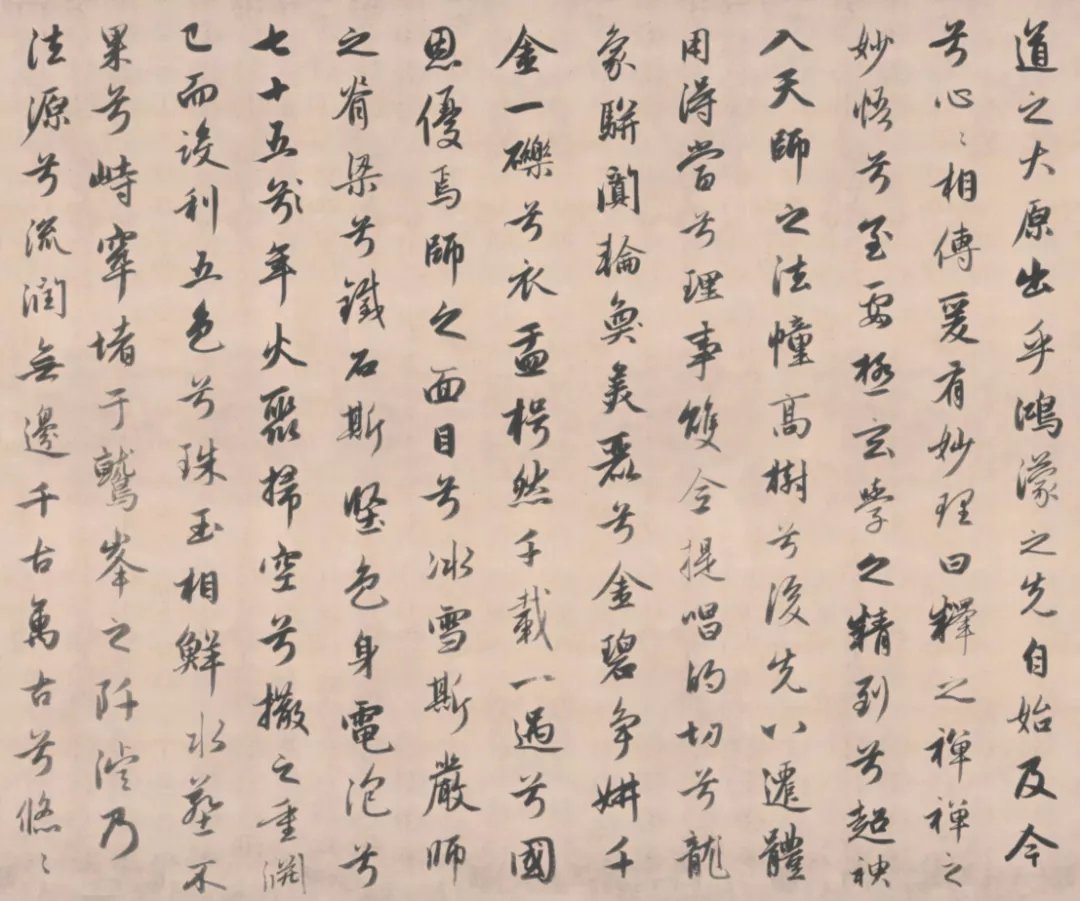 道之大原出乎鴻濛之先自始及今
兮心〻相傳爰有妙理曰釋之禪禪之
妙悟兮至要極玄學之精到兮超
入天師之法幢高樹兮後先八遷體
用得當兮理事雙全提唱的切兮龍
象駢闐輪奐美麗兮金碧争妍千
金一礫兮衣盂楞然千載一遇兮國
恩優焉師之面目兮冰雪斯嚴師
之脊梁兮鐵石斯堅色身電泡兮
七十五年火聚掃空兮撒之重淵
已而設利五色兮珠玉相鮮水葬不
果兮峙窣堵于鷲峯之阡濬乃
法源兮流潤無邊千古萬古兮悠〻